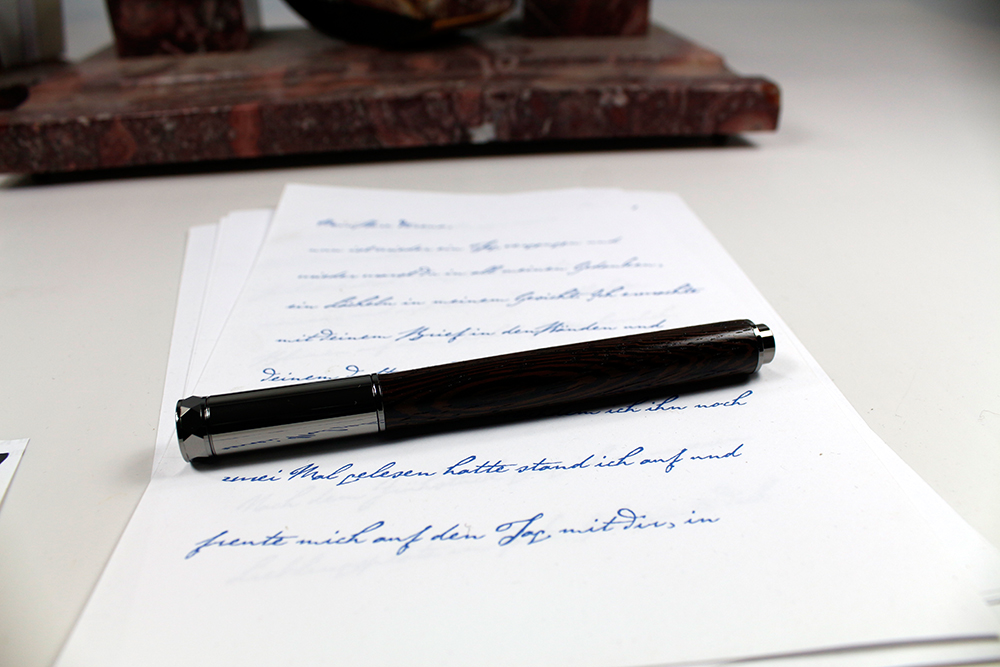 nun ist wieder ein Tag vergangen und
wieder warst du in all meinen Gedanken,
ein lächeln in meinem Gesicht. Ich erwachte
mit deinem Brief in den Händen und
deinem
ich ihn noch
zwei Mal gelesen hatte stand ich auf und
freute mich auf den Tag mit dir, in